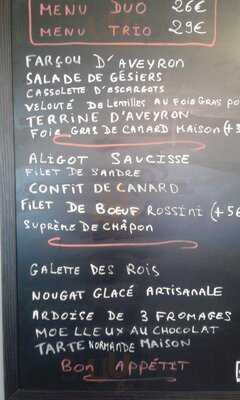 MENU DUO 26€
MENU TRIO 29€
FARÇOU D'AVEYRON
SALADE DE GÉSIERS
CASSOLETTE D'ESCARGOTS
VELOUTÉ DE Lentilles AU FOIE GRAS
TERRINE D'AVEYRON
FOIE GRAS DE CANARD MAISON (+
ALIGOT SAUCISSE
FILET DE SANDRE
CONFIT DE CANARD
FILET DE BOEUF ROSSINI (+5€
SUPRÈME DE CHÂPON
GALETTE DES ROIS
NOUGAT GLACÉ ARTISANALE
ARDOISE DE 3 FROMAGES
MOELLEUX AU CHOCOLAT
TARTE NORMANDE MAISON
BON APPÉTIT